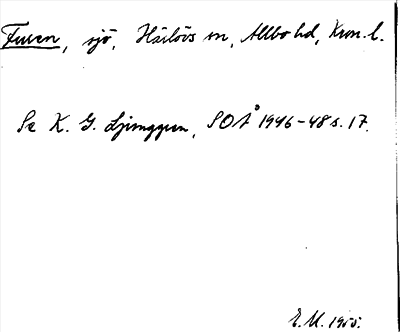 Furen, sjö, Härlövs sn, Allbo hd, Kron. l.
Se K. G. Ljunggren, SOÅ 1946-48 s. 17.
E. M. 1955.